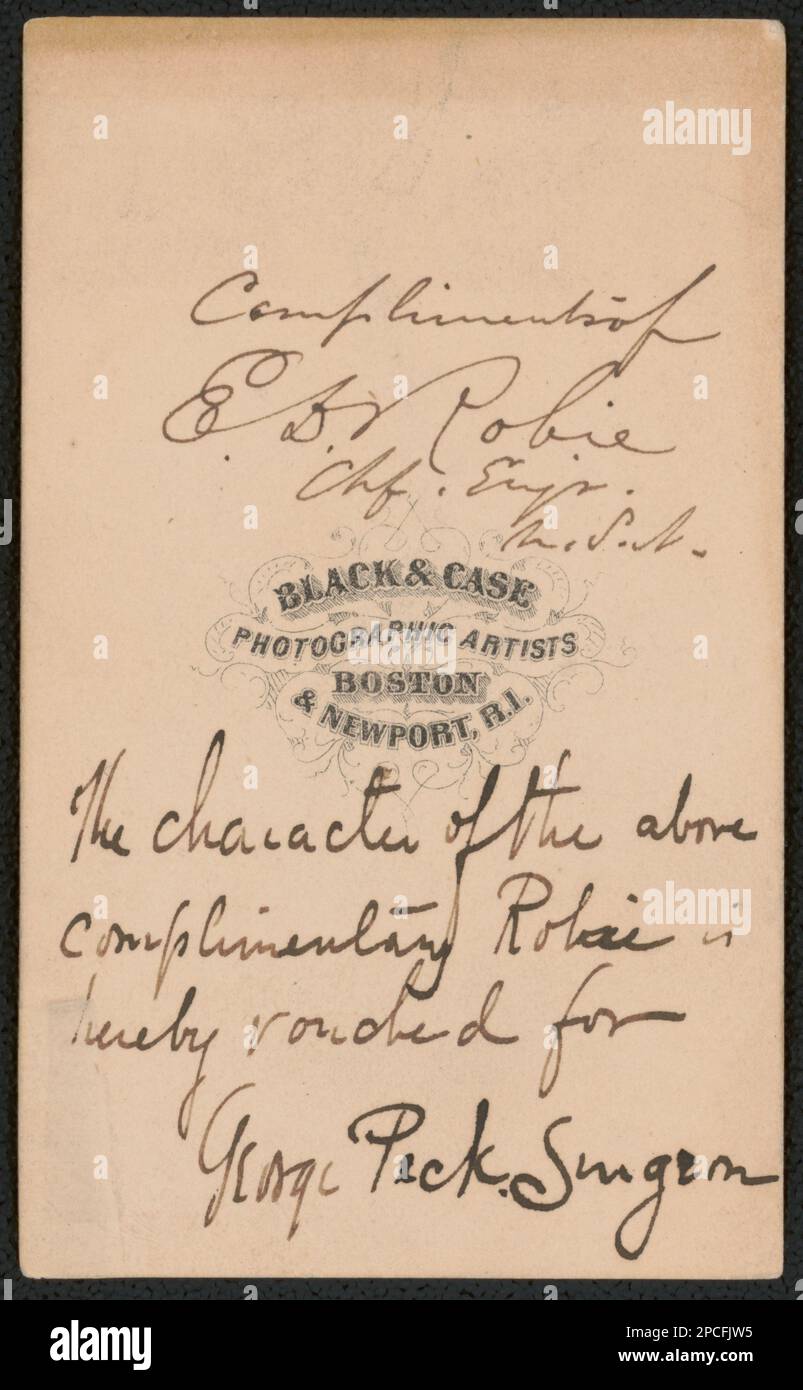 Compliments of
E. D. Robie
Chf. Engr.
U.S.N.
BLACK & CASE
PHOTOGRAPHIC ARTISTS
BOSTON
& NEWPORT, R.I.
The character of the above
complimentary Robie is
hereby vouched for
George Peck. Surgeon
alamy
Image ID: 2PCFJW5
www.alamy.com